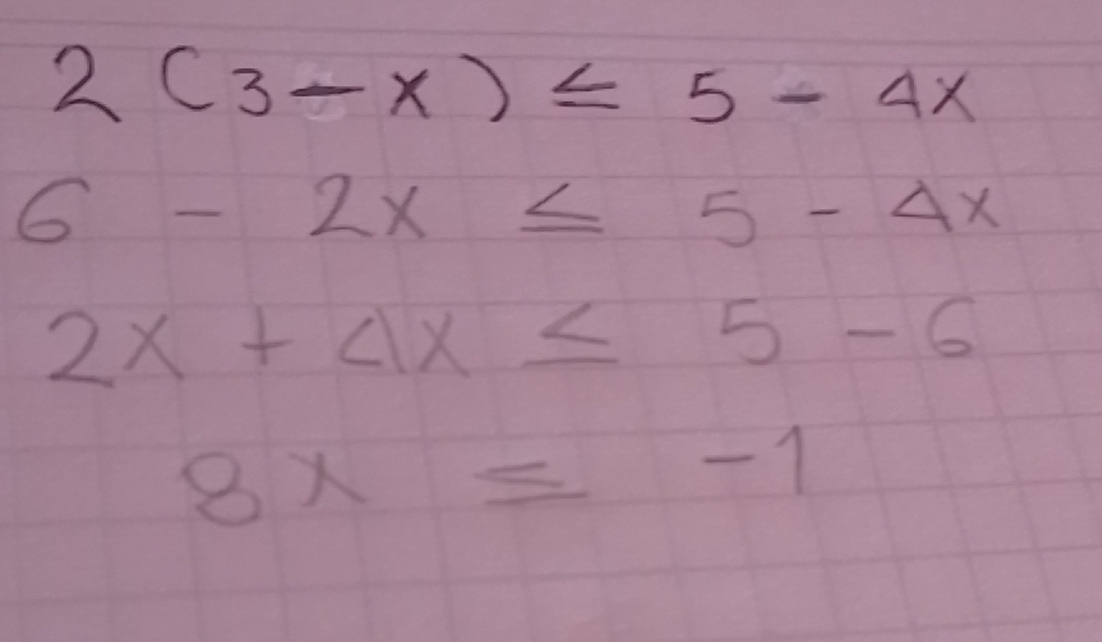 2 (3 - x) ≤ 5 - 4x
6 - 2x ≤ 5 - 4x
2x + 4x ≤ 5 - 6
8x ≤ -1